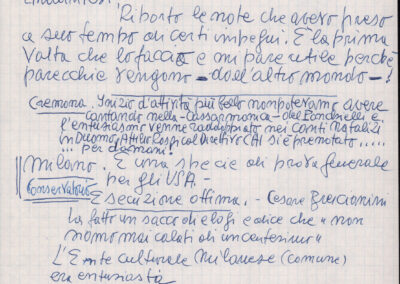 Riporto le note che avevo preso
a suo tempo di certi impegni. È la prima
volta che lo faccio e mi pare utile perché
parecchie vengono - dall'altro mondo -!
Cremona. Inizio d'attività più bello non potevamo avere
cantando nella - Cassarmonica - del Ponchielli e
l'entusiasmo venne raddoppiato nei Canti Natalizi
in Duomo.
per domani!
Milano. È una specie di prova generale
Conservatorio per gli USA. -
Esecuzione ottima. - Cesare
ha fatto un sacco di elogi e dice che "non
siamo mai calati di un centesimo"
L'Ente culturale Milanese (comune)
era entusiasta